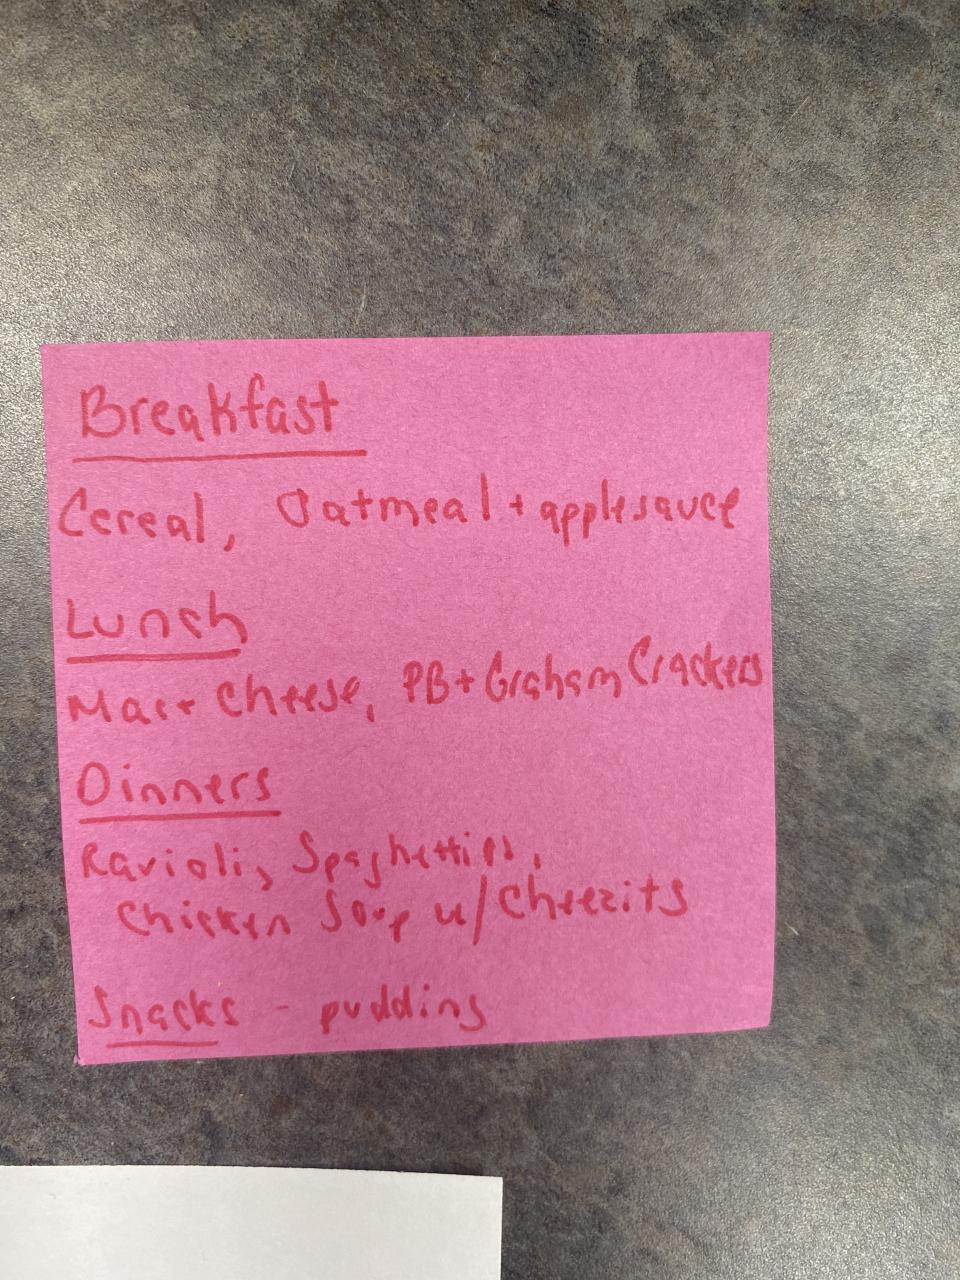 Breakfast
Cereal, Oatmeal + applesauce
Lunch
Mac + Cheese, PB + Graham Crackers
Dinners
Ravioli, Spaghettios,
Chicken Soup w/ Cheezits
Snacks - pudding